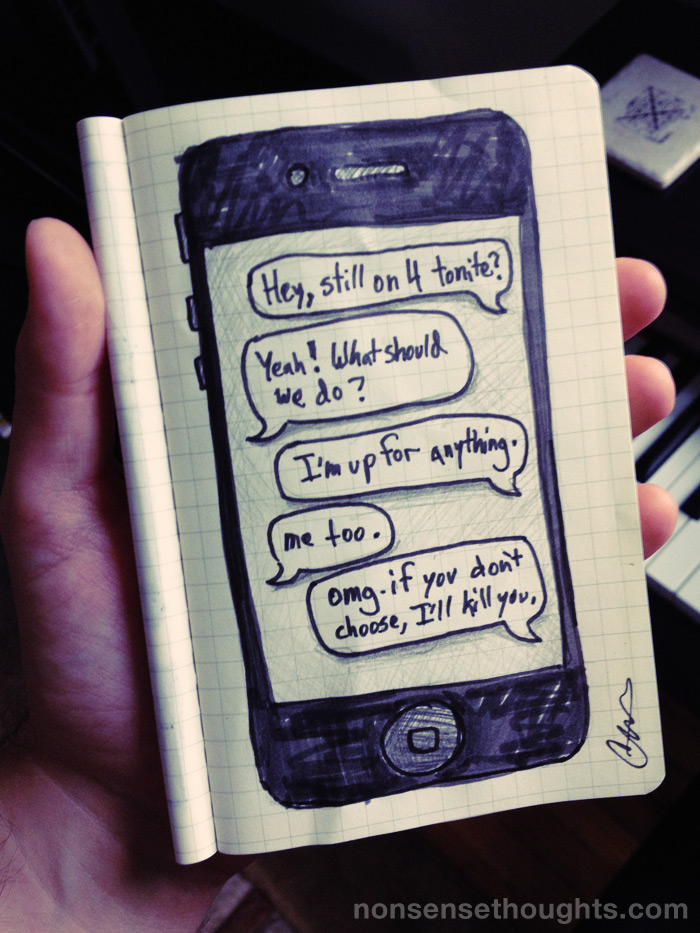 Hey, still on 4 tonite?
Yeah! What should
we do?
I'm up for anything.
me too.
omg. if you don't
choose, I'll kill you.
nonsensethoughts.com